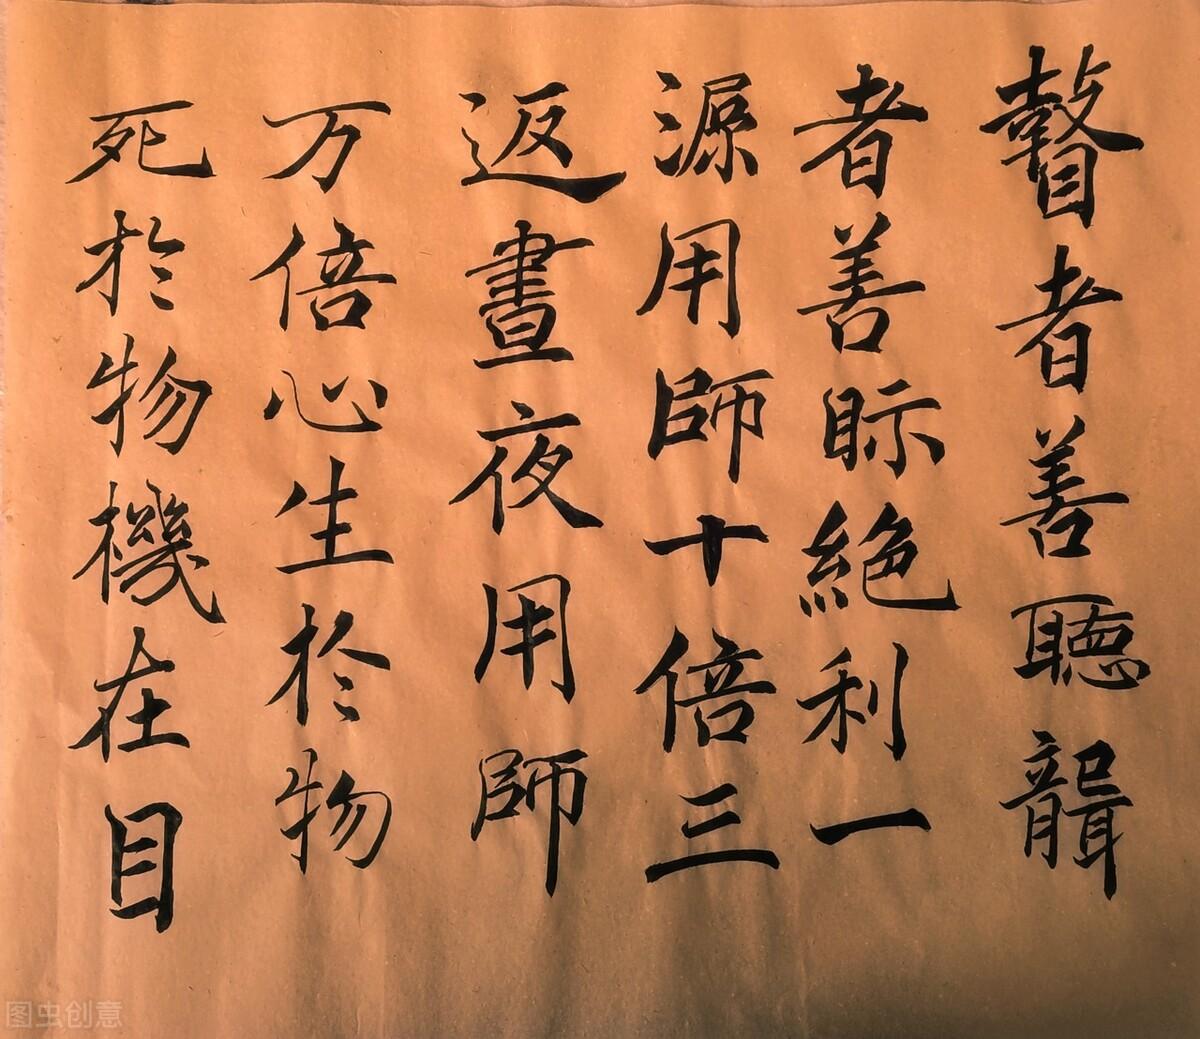 瞽者善聽聾
者善眎絶利一
源用師十倍三
返晝夜用師
万倍心生於物
死於物機在目
图虫创意